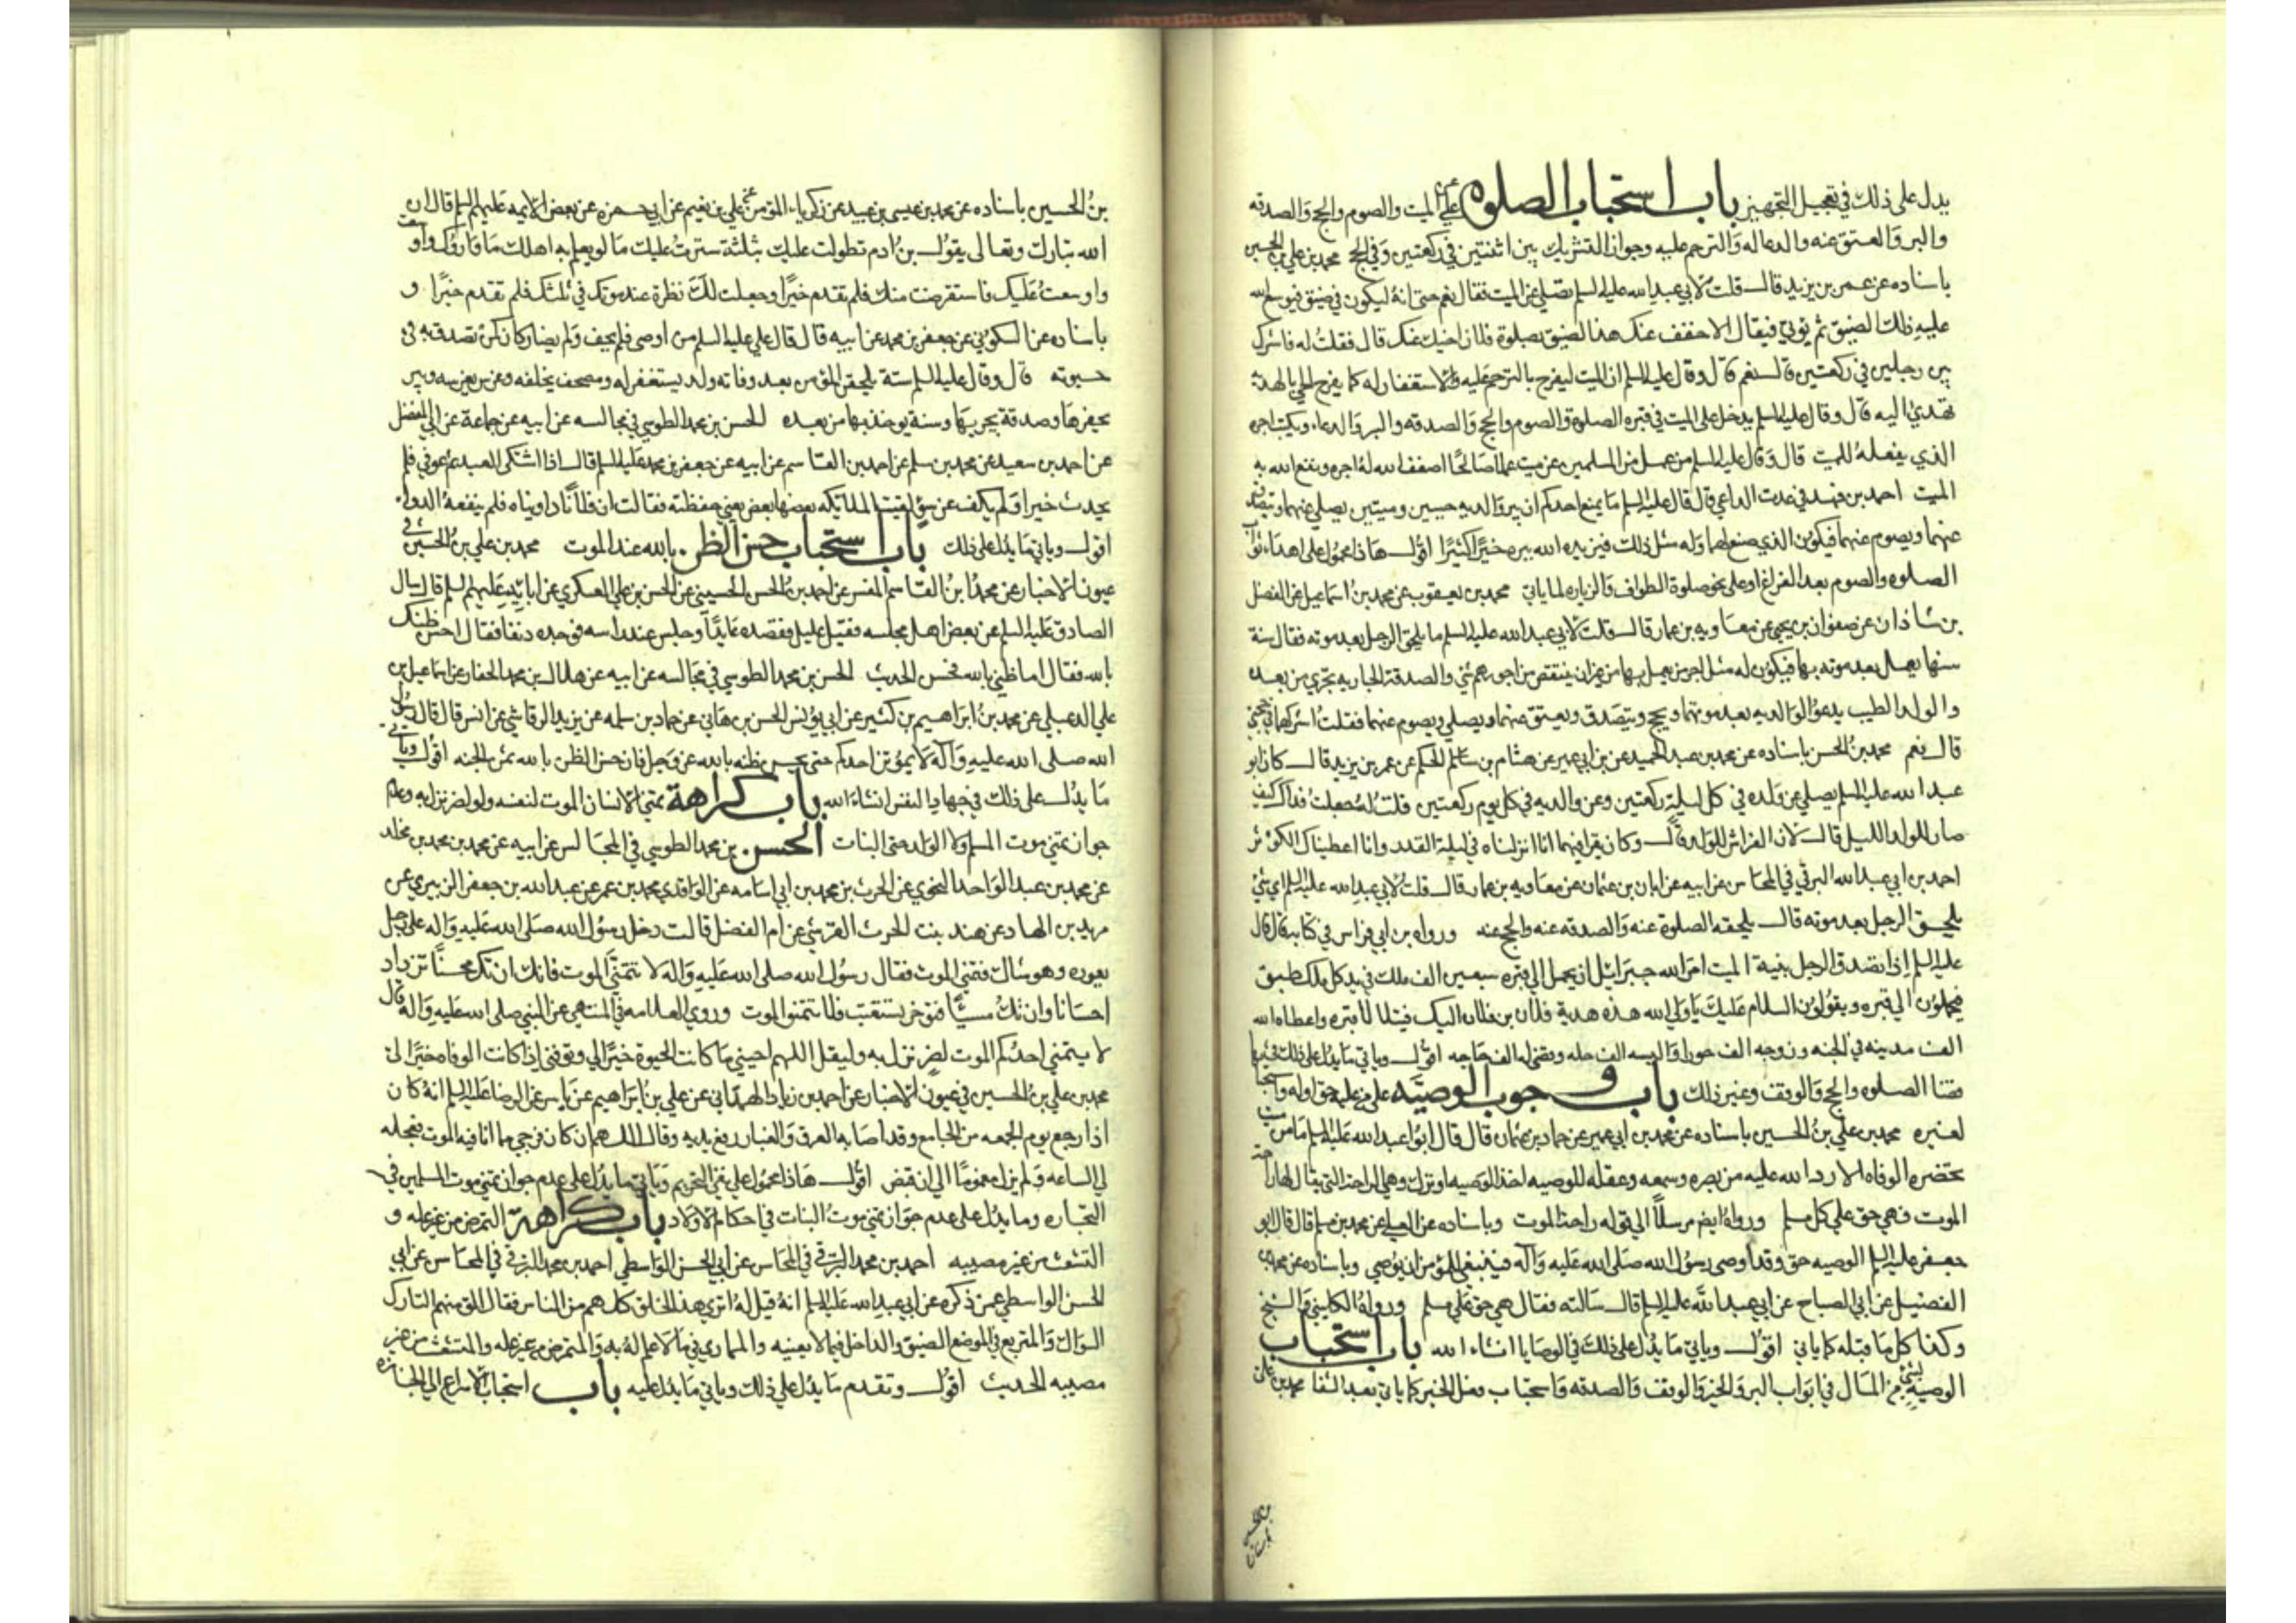 يدل على ذلك في تعجيل التجهيز باب استحباب الصلوة عن الميت والصوم والحج والصدقه
والبر والعتق عنه والدعا له والترحم عليه وجواز التشريك بين اثنتين في ركعتين وفي الحج محمد بن علي بن الحسين
باسناده عن عمر بن يزيد قال قلت لابي عبد الله عليه السلم نصلي عن الميت فقال نعم حتى انه ليكون في ضيق فيوسع الله
عليه ذلك الضيق ثم يوتى فيقال له خفف عنك هذا الضيق بصلوة فلان اخيك عنك قال فقلت له فاشرك
بين رجلين في ركعتين قال نعم قال وقال عليه السلم ان الميت ليفرح بالترحم عليه والاستغفار له كما يفرح الحي بالهدية
تهدى اليه قال وقال عليه السلم يدخل على الميت في قبره الصلوة والصوم والحج والصدقه والبر والدعاء ويكتب اجره
الذي يفعله للميت قال وقال عليه السلم من عمل من المسلمين عن ميت عملا صالحا اضعف الله له اجره ونفع الله به
الميت احمد بن فهد في عدت الداعي قال قال عليه السلم ما يمنع احدكم ان يبر والديه حيين وميتين يصلي عنهما ويتصدق
عنهما ويصوم عنهما فيكون الذي صنع لهما وله مثل ذلك فيزيده الله ببره خيرا كثيرا اقول هاذا محمول على اهداء ثواب
الصلوه والصوم بعد الفراغ او على نحو صلوة الطواف والزياره لما ياتي محمد بن يعقوب عن محمد بن اسماعيل عن الفضل
بن شاذان عن صفوان بن يحيى عن معاويه بن عمار قال قلت لابي عبد الله عليه السلم ما يلحق الرجل بعد موته فقال سنة
سنها يعمل بعد موته بها فيكون له مثل اجر من يعمل بها من غير ان ينتقص من اجورهم شي والصدقة الجاريه تجري من بعده
والولد الطيب يدعو لوالديه بعد موتهما ويحج ويتصدق ويعتق عنهما ويصلي ويصوم عنهما فقلت اشركهما في حجتي
قال نعم محمد بن الحسن باسناده عن محمد بن عبد الحميد عن بن ابي عمير عن هشام بن سالم الحكم عن عمر بن يزيد قال كان ابو
عبد الله عليه السلم يصلي عن ولده في كل ليلة ركعتين وعن والديه في كل يوم ركعتين قلت له جعلت فداك كيف
صار للولد الليل قال لان الفراش للولد قال وكان يقرا فيهما انا انزلناه في ليلة القدر وانا اعطيناك الكوثر
احمد بن ابي عبد الله البرقي في المحاسن عن ابيه عن ابان بن عثمان عن معاويه بن عمار قال قلت لابي عبد الله عليه السلم اي شي
يلحق الرجل بعد موته قال يلحقه الصلوة عنه والصدقه عنه والحج عنه ورواه بن ابي فراس في كتابه قال قال
عليه السلم اذا تصدق الرجل بنية الميت امر الله جبرائيل ان يحمل الى قبره سبعين الف ملك في يد كل ملك طبق
فيحملون الى قبره ويقولون السلام عليك يا ولي الله هذه هدية فلان بن فلان اليك فيتلالا قبره واعطاه الله
الف مدينه في الجنه وزوجه الف حورا والبسه الف حله وقضى له الف حاجه اقول وياتي ما يدل على ذلك في
قضا الصلوه والحج والوقف وغير ذلك باب وجوب الوصية على من عليه حق او له واستحبابها
لغيره محمد بن علي بن الحسين باسناده عن محمد بن ابي عمير عن حماد بن عثمان قال قال ابو عبد الله عليه السلم ما من ميت
تحضره الوفاه الا رد الله عليه من بصره وسمعه وعقله للوصيه اخذ الوصيه او ترك وهي الراحة التي يقال لها راحة
الموت فهي حق على كل مسلم ورواه ايض مرسلا الى قوله راحة الموت وباسناده عن العلا عن محمد بن مسلم قال قال ابو
جعفر عليه السلم الوصيه حق وقد اوصى رسول الله صلى الله عليه وآله فينبغي للمؤمن ان يوصي وباسناده عن محمد بن
الفضيل عن ابي الصباح عن ابي عبد الله عليه السلم قال سالته فقال هي حق على مسلم ورواه الكليني والشيخ
وكذا كل ما قبله كما ياتي اقول وياتي ما يدل على ذلك في الوصايا انشاء الله باب استحباب
الوصية بشئ من المال في ابواب البر والخير والوقف والصدقه واستحباب فعل الخير كما ياتي بعد الشفا محمد بن علي
بن الحسين
باسناده
بن الحسين باسناده عن محمد بن عيسى بن عبيد عن زكرياء المؤمن عن علي بن نعيم عن ابي حمزه عن بعض الايمه عليهم السلم قال ان
الله تبارك وتعالى يقول بن ادم تطولت عليك بثلثة سترت عليك ما لو يعلم به اهلك ما واروك
واوسعت عليك فاستقرضت منك فلم تقدم خيرا وجعلت لك نظرة عند موتك في ثلثك فلم تقدم خيرا و
باسناده عن السكوني عن جعفر بن محمد عن ابيه قال قال علي عليه السلم من اوصى فلم يحيف ولم يضار كان كمن تصدق به في
حيوته قال وقال عليه السلم ستة يلحقن المؤمن بعد وفاته ولد يستغفر له ومصحف يخلفه وغرس يغرسه وبير
يحفرها وصدقة يجريها وسنة يوخذ بها من بعده الحسن بن محمد الطوسي في مجالسه عن ابيه عن جماعة عن ابي المفضل
عن احمد بن سعيد عن محمد بن سلم عن احمد بن القاسم عن ابيه عن جعفر بن محمد عليه السلم قال اذا اشتكى العبد ثم عوفي فلم
يحدث خيرا ولم يكف عن سؤ لقيت الملائكه بعضها بعض يعني حفظته فقالت ان فلانا داويناه فلم ينفعه الدواء.
اقول وياتي ما يدل على ذلك باب استحباب حسن الظن بالله عند الموت محمد بن علي بن الحسين في
عيون الاخبار عن محمد ابن القاسم المفسر عن احمد بن الحسن الحسيني عن الحسن بن علي العسكري عن ابائه عليهم السلم قال سال
الصادق عليه السلم عن بعض اهل مجلسه فقيل عليل فقصده عايدا وجلس عند راسه فوجده دنفا فقال احسن ظنك
بالله فقال اما ظني بالله فحسن الحديث الحسن بن محمد الطوسي في مجالسه عن ابيه عن هلال بن محمد الحفار عن اسماعيل بن
علي الدعبلي عن محمد بن ابراهيم بن كثير عن ابي يونس الحسن بن هاني عن حماد بن سلمه عن يزيد الرقاشي عن انس قال قال رسول
الله صلى الله عليه وآله لا يموتن احدكم حتى يحسن ظنه بالله عز وجل فان حسن الظن بالله ثمن الجنه اقول وياتي
ما يدل على ذلك في جهاد النفس انشاء الله باب كراهة تمني الانسان الموت لنفسه ولو لضر نزل به وعدم
جواز تمني موت المسلم ولا الولد حتى البنات الحسن بن محمد الطوسي في المجالس عن ابيه عن محمد بن محمد بن مخلد
عن محمد بن عبد الواحد النحوي عن الحرث بن محمد بن ابي اسامه عن الواقدي محمد بن عمر عن عبد الله بن جعفر الزبيري عن
مريد بن الهاد عن هند بنت الحرث القرشي عن ام الفضل قالت دخل رسول الله صلى الله عليه واله على رجل
يعوده وهو شاك فتمنى الموت فقال رسول الله صلى الله عليه واله لا تتمنى الموت فانك ان تك محسنا تزداد
احسانا وان تك مسيئا فتوخر تستعتب فلا تتمنوا الموت وروى العلامه في المنتهى عن النبي صلى الله عليه وآله قال
لا يتمنى احدكم الموت لضر نزل به وليقل اللهم احيني ما كانت الحيوة خيرا لي وتوفني اذا كانت الوفاه خيرا لي
محمد بن علي بن الحسين في عيون الاخبار عن احمد بن زياد الهمداني عن علي بن ابراهيم عن ياسر عن الرضا عليه السلم انه كان
اذا رجع يوم الجمعه من الجامع وقد اصابه العرق والغبار رفع يديه وقال اللهم ان كان فرجي مما انا فيه الموت فعجله
لي الساعه ولم يزل مغموما الى ان قبض اقول هاذا محمول على نفي التحريم وياتي ما يدل على عدم جواز تمني موت المسلمين في
التجاره وما يدل على عدم جواز تمني موت البنات في احكام الاولاد باب كراهة التمرض من غير علة و
التشعث من غير مصيبه احمد بن محمد البرقي في المحاسن عن ابي الحسن الواسطي احمد بن محمد البرقي في المحاسن عن ابي
الحسن الواسطي عمن ذكره عن ابي عبد الله عليه السلم انه قيل له اترى هذا الخلق كلهم من الناس فقال الق منهم التارك
السواك والمتربع في الموضع الضيق والداخل فيما لا يعنيه والمماري في ما لا علم له به والمتمرض من غير علة والمتشعث من غير
مصيبه الحديث اقول وتقدم ما يدل على ذلك وياتي ما يدل عليه باب استحباب الاسراع الى الجنازه